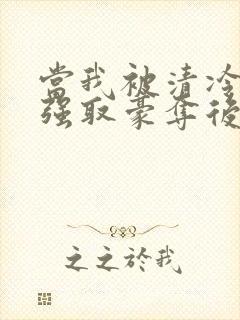 當我被清冷
強取豪奪後
之之於我